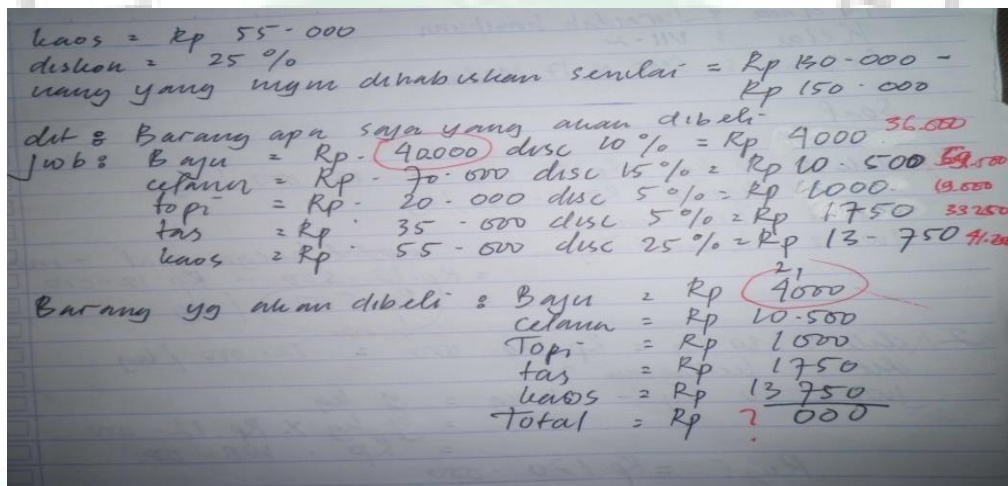 kaos = Rp 55.000
diskon = 25 %
uang yang ingin dihabiskan senilai = Rp 130.000 -
Rp 150.000
dit : Barang apa saja yang akan dibeli.
Jwb : Baju = Rp. 40000 disc 10 % = Rp 4000 36.000
celana = Rp. 70.000 disc 15 % = Rp 10.500
topi = Rp. 20.000 disc 5 % = Rp 1000. 19.000
tas = Rp 35.000 disc 5 % = Rp 1750 33250
kaos = Rp 55.000 disc 25 % = Rp 13.750
Barang yg akan dibeli : Baju = Rp 4000
celana = Rp 10.500
Topi = Rp 1000
tas = Rp 1750
kaos = Rp 13 750
Total = Rp ? 000